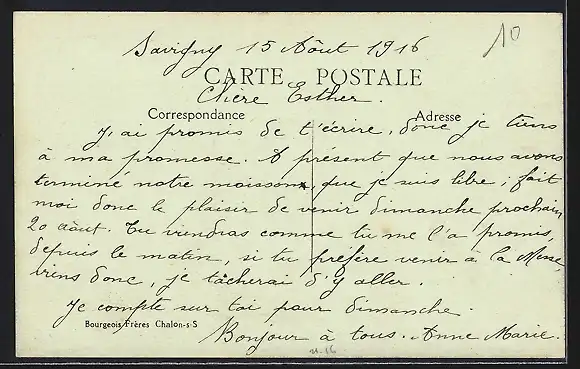 10
Savigny 15 Août 1916
CARTE POSTALE
Chère Esther.
Correspondance
Adresse
J'ai promis de t'écrire, donc je tiens
à ma promesse. A présent que nous avons
terminé notre moisson, que je suis libre; fait
moi donc le plaisir de venir dimanche prochain
20 août. Tu viendras comme tu me l'a promis,
depuis le matin, si tu préfère venir à la Messe,
viens donc, je tâcherai d'y aller.
Je compte sur toi pour dimanche.
Bourgeois Frères Chalon-s-S
Bonjour à tous. Anne Marie.